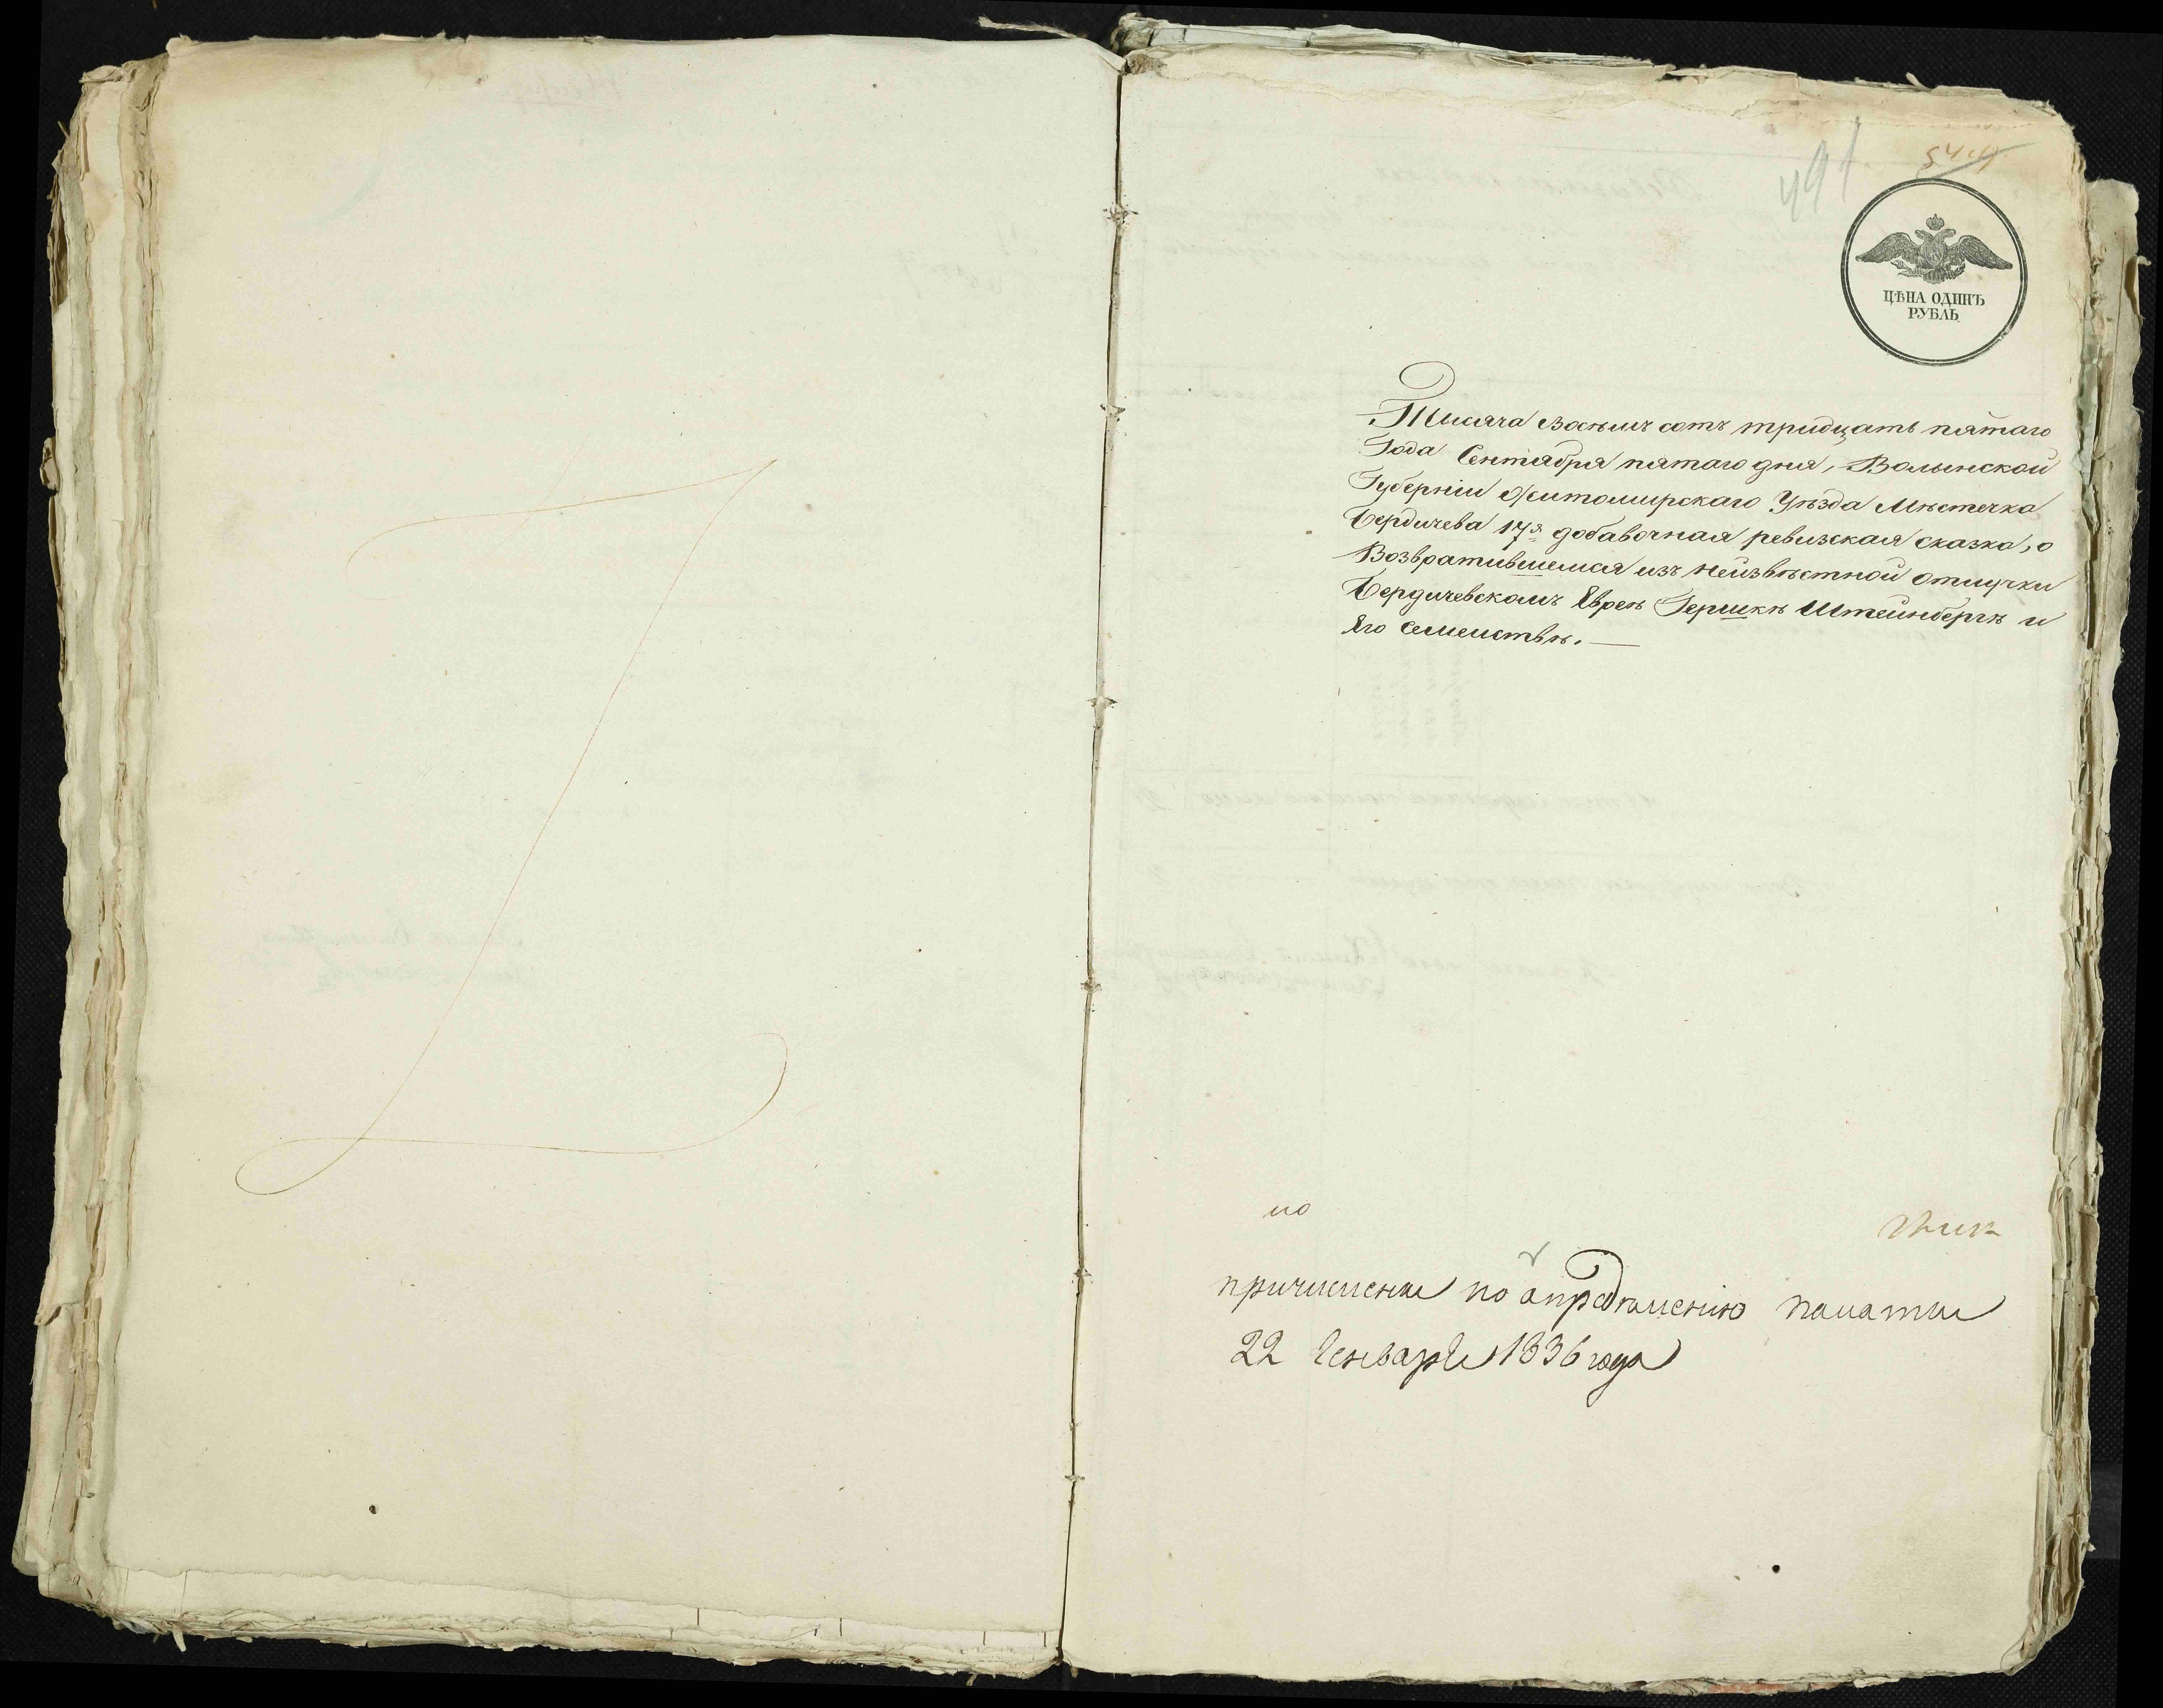 491
ЦѢНА ОДИНЪ
РУБЛЬ
Тысяча восемь сотъ тридцать пятаго
Года Сентября пятаго дня, Волынской
Губерніи Житомирскаго Уѣзда Мѣстечка
Бердичева 17я добавочная ревизская сказка, о
Возвратившемся изъ неизвѣстной отлучки
Бердичевскомъ Евреѣ Гершкѣ Штейнбергѣ и
Его семействѣ.
по
причислены по опредѣленію палаты
22 Генваря 1836 года